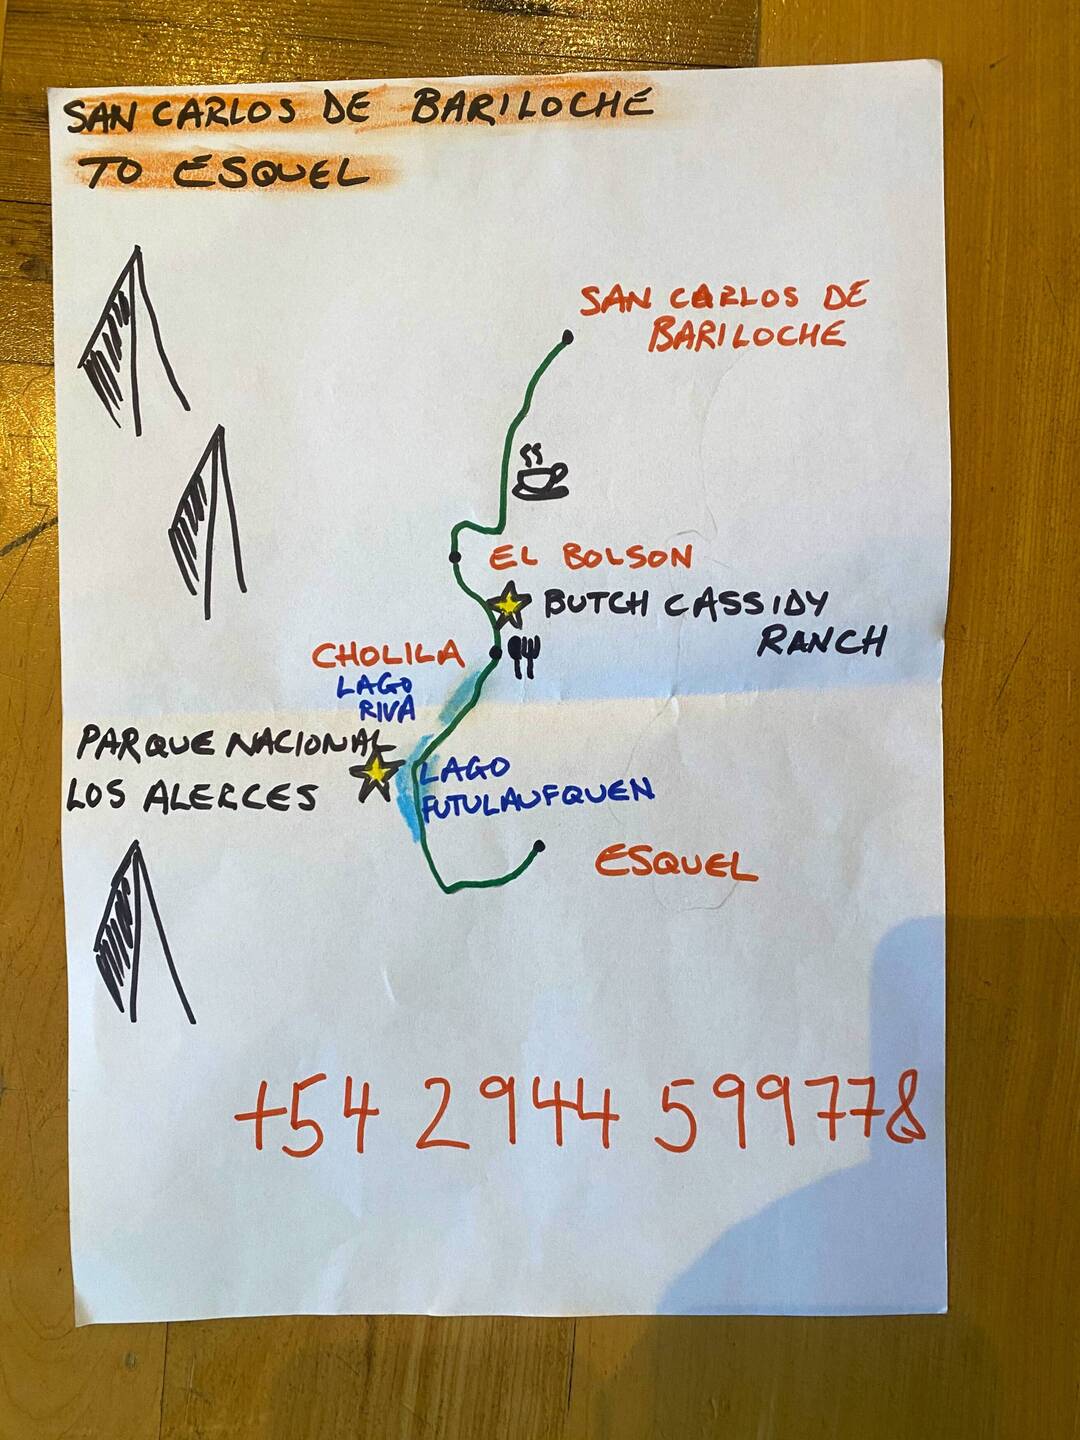 SAN CARLOS DE BARILOCHE
TO ESQUEL
SAN CARLOS DE
BARILOCHE
EL BOLSON
BUTCH CASSIDY
RANCH
CHOLILA
LAGO
RIVA
PARQUE NACIONAL
LOS ALERCES
LAGO
FUTULAUFQUEN
ESQUEL
+54 2944 599778